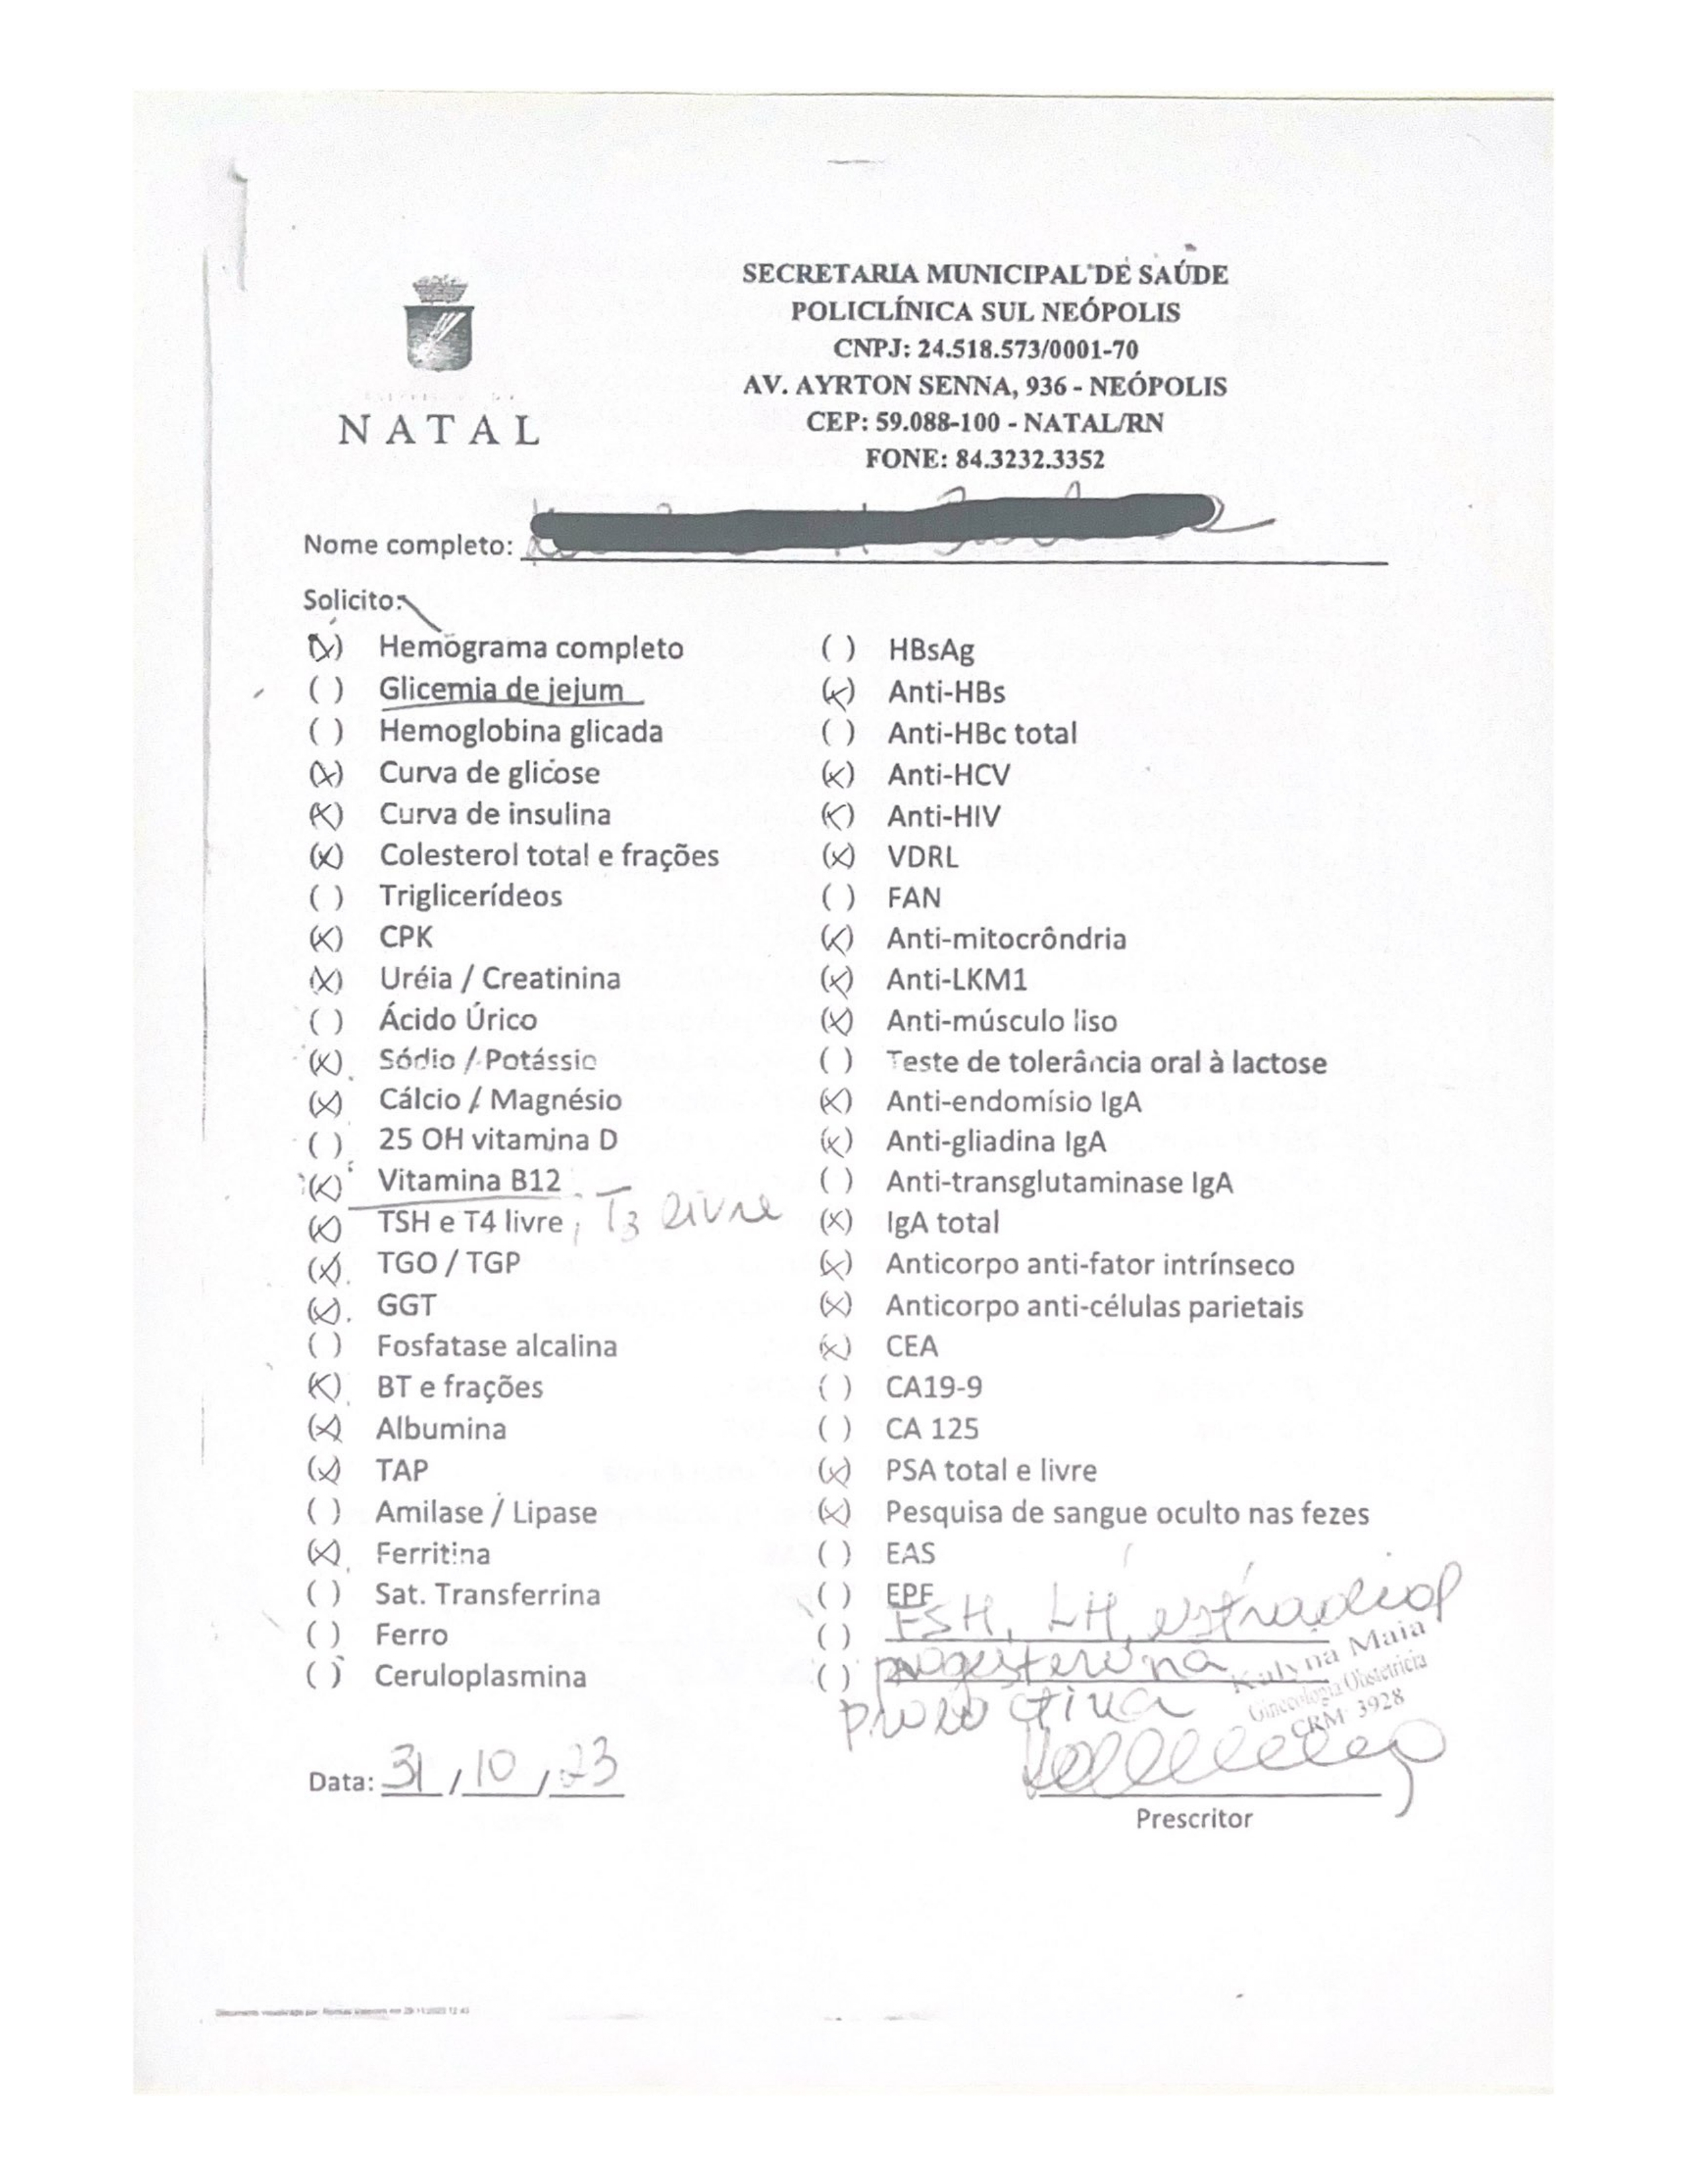 SECRETARIA MUNICIPAL DE SAÚDE
POLICLÍNICA SUL NEÓPOLIS
CNPJ: 24.518.573/0001-70
AV. AYRTON SENNA, 936 - NEÓPOLIS
CEP: 59.088-100 - NATAL/RN
FONE: 84.3232.3352
NATAL
Nome completo:
Solicito:
(x) Hemograma completo
( ) Glicemia de jejum
( ) Hemoglobina glicada
(x) Curva de glicose
(x) Curva de insulina
(x) Colesterol total e frações
( ) Triglicerídeos
(x) CPK
(x) Uréia / Creatinina
( ) Ácido Úrico
(x) Sódio / Potássio
(x) Cálcio / Magnésio
( ) 25 OH vitamina D
(x) Vitamina B12
(x) TSH e T4 livre, T3 livre
(x) TGO / TGP
(x) GGT
( ) Fosfatase alcalina
(x) BT e frações
(x) Albumina
(x) TAP
( ) Amilase / Lipase
(x) Ferritina
( ) Sat. Transferrina
( ) Ferro
( ) Ceruloplasmina
( ) HBsAg
(x) Anti-HBs
( ) Anti-HBc total
(x) Anti-HCV
(x) Anti-HIV
(x) VDRL
( ) FAN
(x) Anti-mitocrôndria
(x) Anti-LKM1
(x) Anti-músculo liso
( ) Teste de tolerância oral à lactose
(x) Anti-endomísio IgA
(x) Anti-gliadina IgA
( ) Anti-transglutaminase IgA
(x) IgA total
(x) Anticorpo anti-fator intrínseco
(x) Anticorpo anti-células parietais
(x) CEA
( ) CA19-9
( ) CA 125
(x) PSA total e livre
(x) Pesquisa de sangue oculto nas fezes
( ) EAS
( ) EPF
( ) FSH, LH, estradiol
( ) progesterona
prolactina
Kalyna Maia
Ginecologia Obstetrícia
CRM 3928
Data: 31/10/23
Prescritor